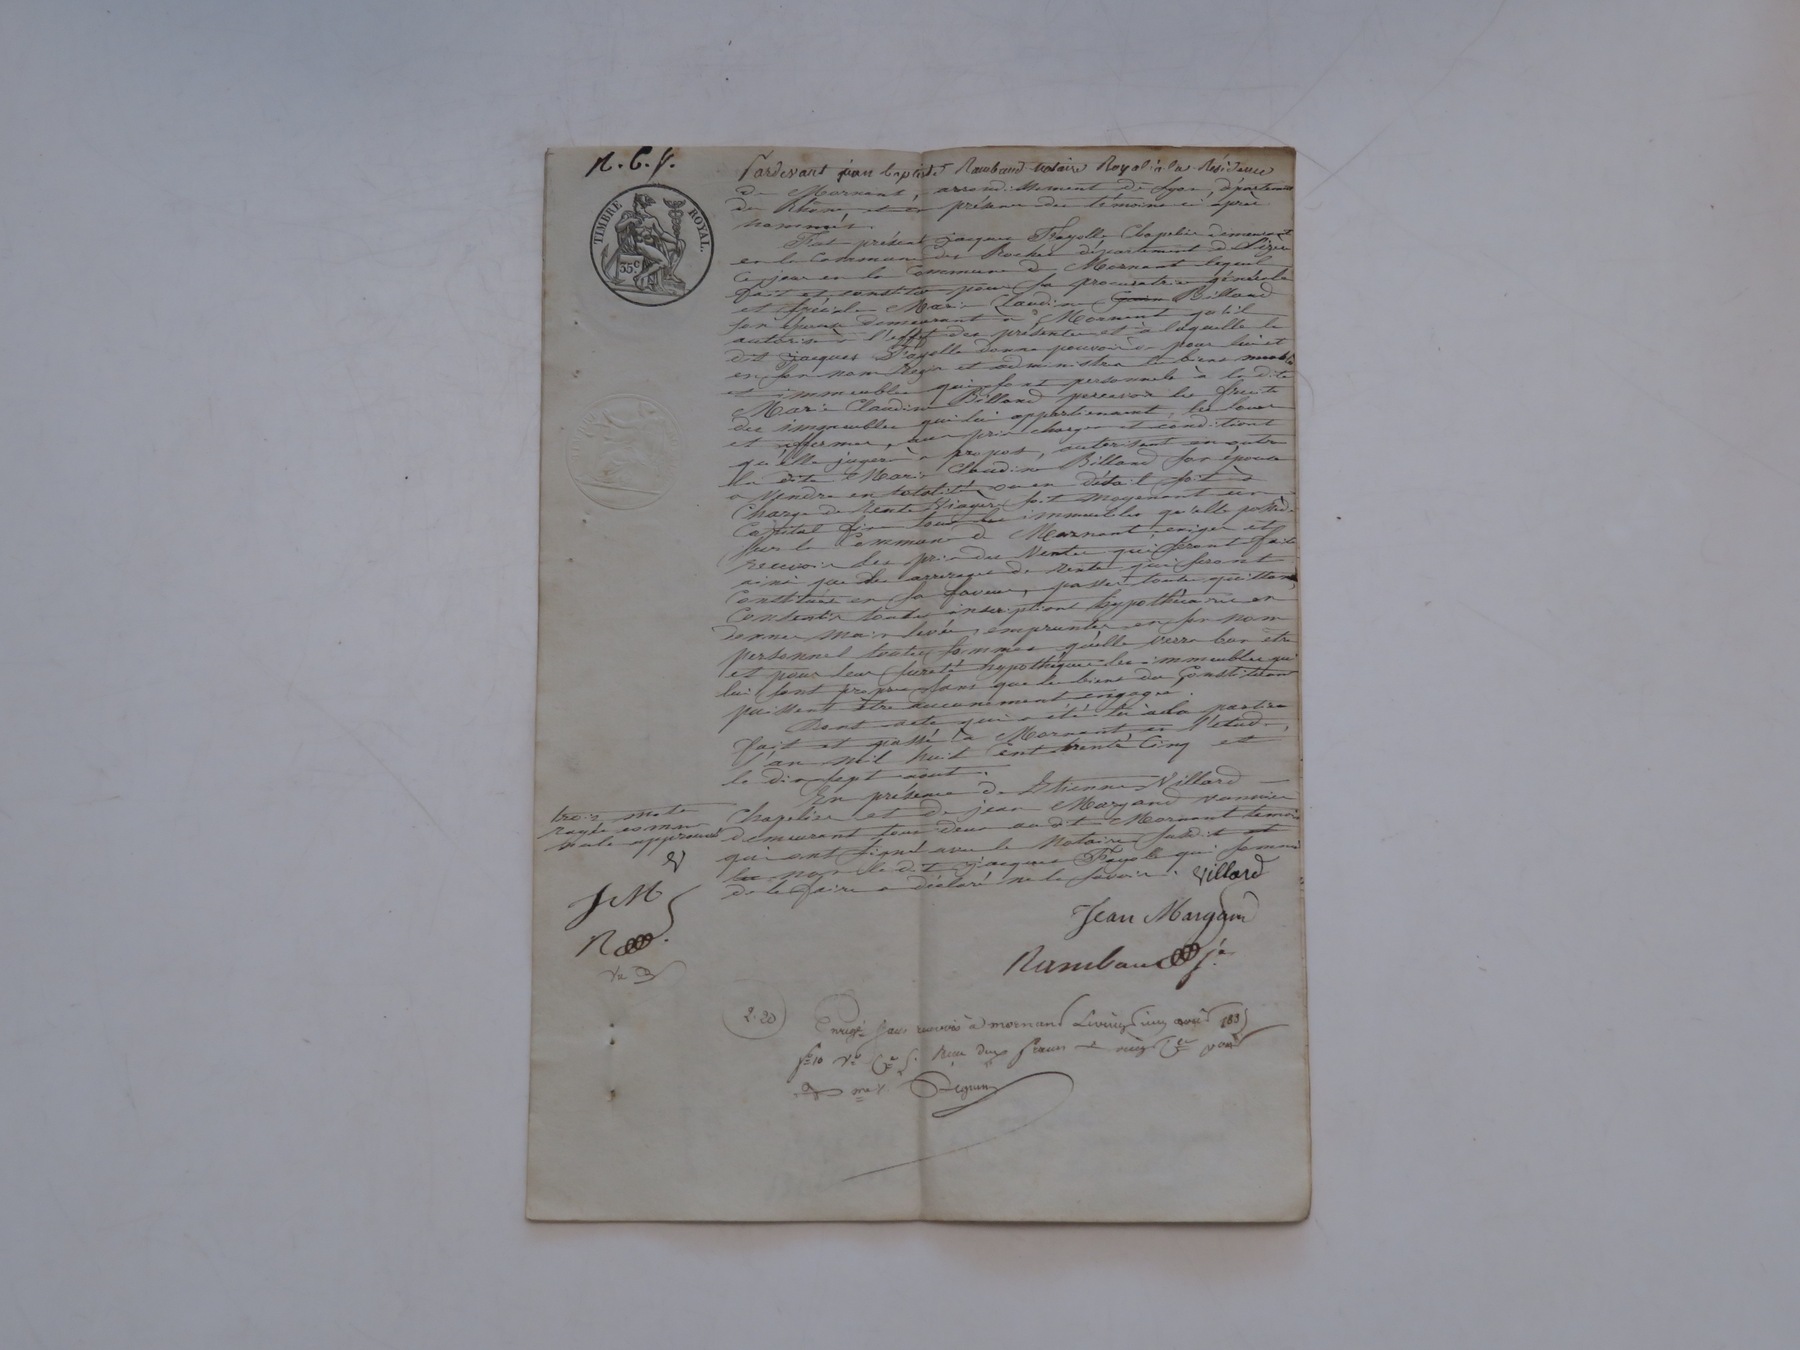 N. C. V.
TIMBRE ROYAL.
35c
Pardevant jean baptiste Rambaud notaire Royal à la Résidence
de Mornant, arrondissement de Lyon, département
du Rhône et en présence des témoins ci après
nommés.
Fut présent jacques Fayolle Chapelier demeurant
en la Commune des Roches département de l'izère
Ce jour en la Commune de Mornant lequel
fait et constitue pour sa procuratrice générale
et spéciale Marie Claudine Billand
son épouse demeurant à Mornant qu'il
autorise à l'effet des présentes et à laquelle le
dit jacques Fayolle donne pouvoir de pour lui et
en son nom Regir et administrer les biens meubles
et immeubles qui sont personnels à la dite
Marie Claudine Billand percevoir les fruits
des immeubles qui lui appartiennent, les louer
et affermer, aux prix charges et conditions
qu'elle jugera à propos, autorisant en outre
la dite Marie Claudine Billand son épouse
a Vendre en totalité ou en détail soit à
Charge de rente Viagère soit moyenant un
Capital fixe tous les immeubles qu'elle possède
sur la Commune de Mornant, exiger et
recevoir les prix des Ventes qui seront faites
ainsi que les arrerages de rente qui seront
Constitués en sa faveur, passer toutes quittances
Consentir toutes inscriptions hypothécaires en
donner main levée, emprunter en son nom
personnel toutes sommes qu'elle verra bon être
et pour leur sureté hypothéquer les immeubles qui
lui sont propres sans que les biens du Constituant
puissent être aucunement engagés.
Dont acte qui a été lu à la partie
fait et passé à Mornant en l'étude
l'an mil huit Cent trente Cinq et
le dix sept aout.
En présence de Etienne Villard
Chapelier et de jean Margand vannier
demeurant tous deux au dit Mornant temoins
qui ont signé avec le Notaire susdit et
non le dit jacques Fayolle qui sommé
de le faire a déclaré ne le savoir.
Villard
trois mots
rayés comme
nuls approuvés
V
J M
R
Jean Margand
Rambaud
2.20
Enregé sans renvois à mornant le vingt cinq août 1835
fo 10 Vo Reçu deux francs et vingt